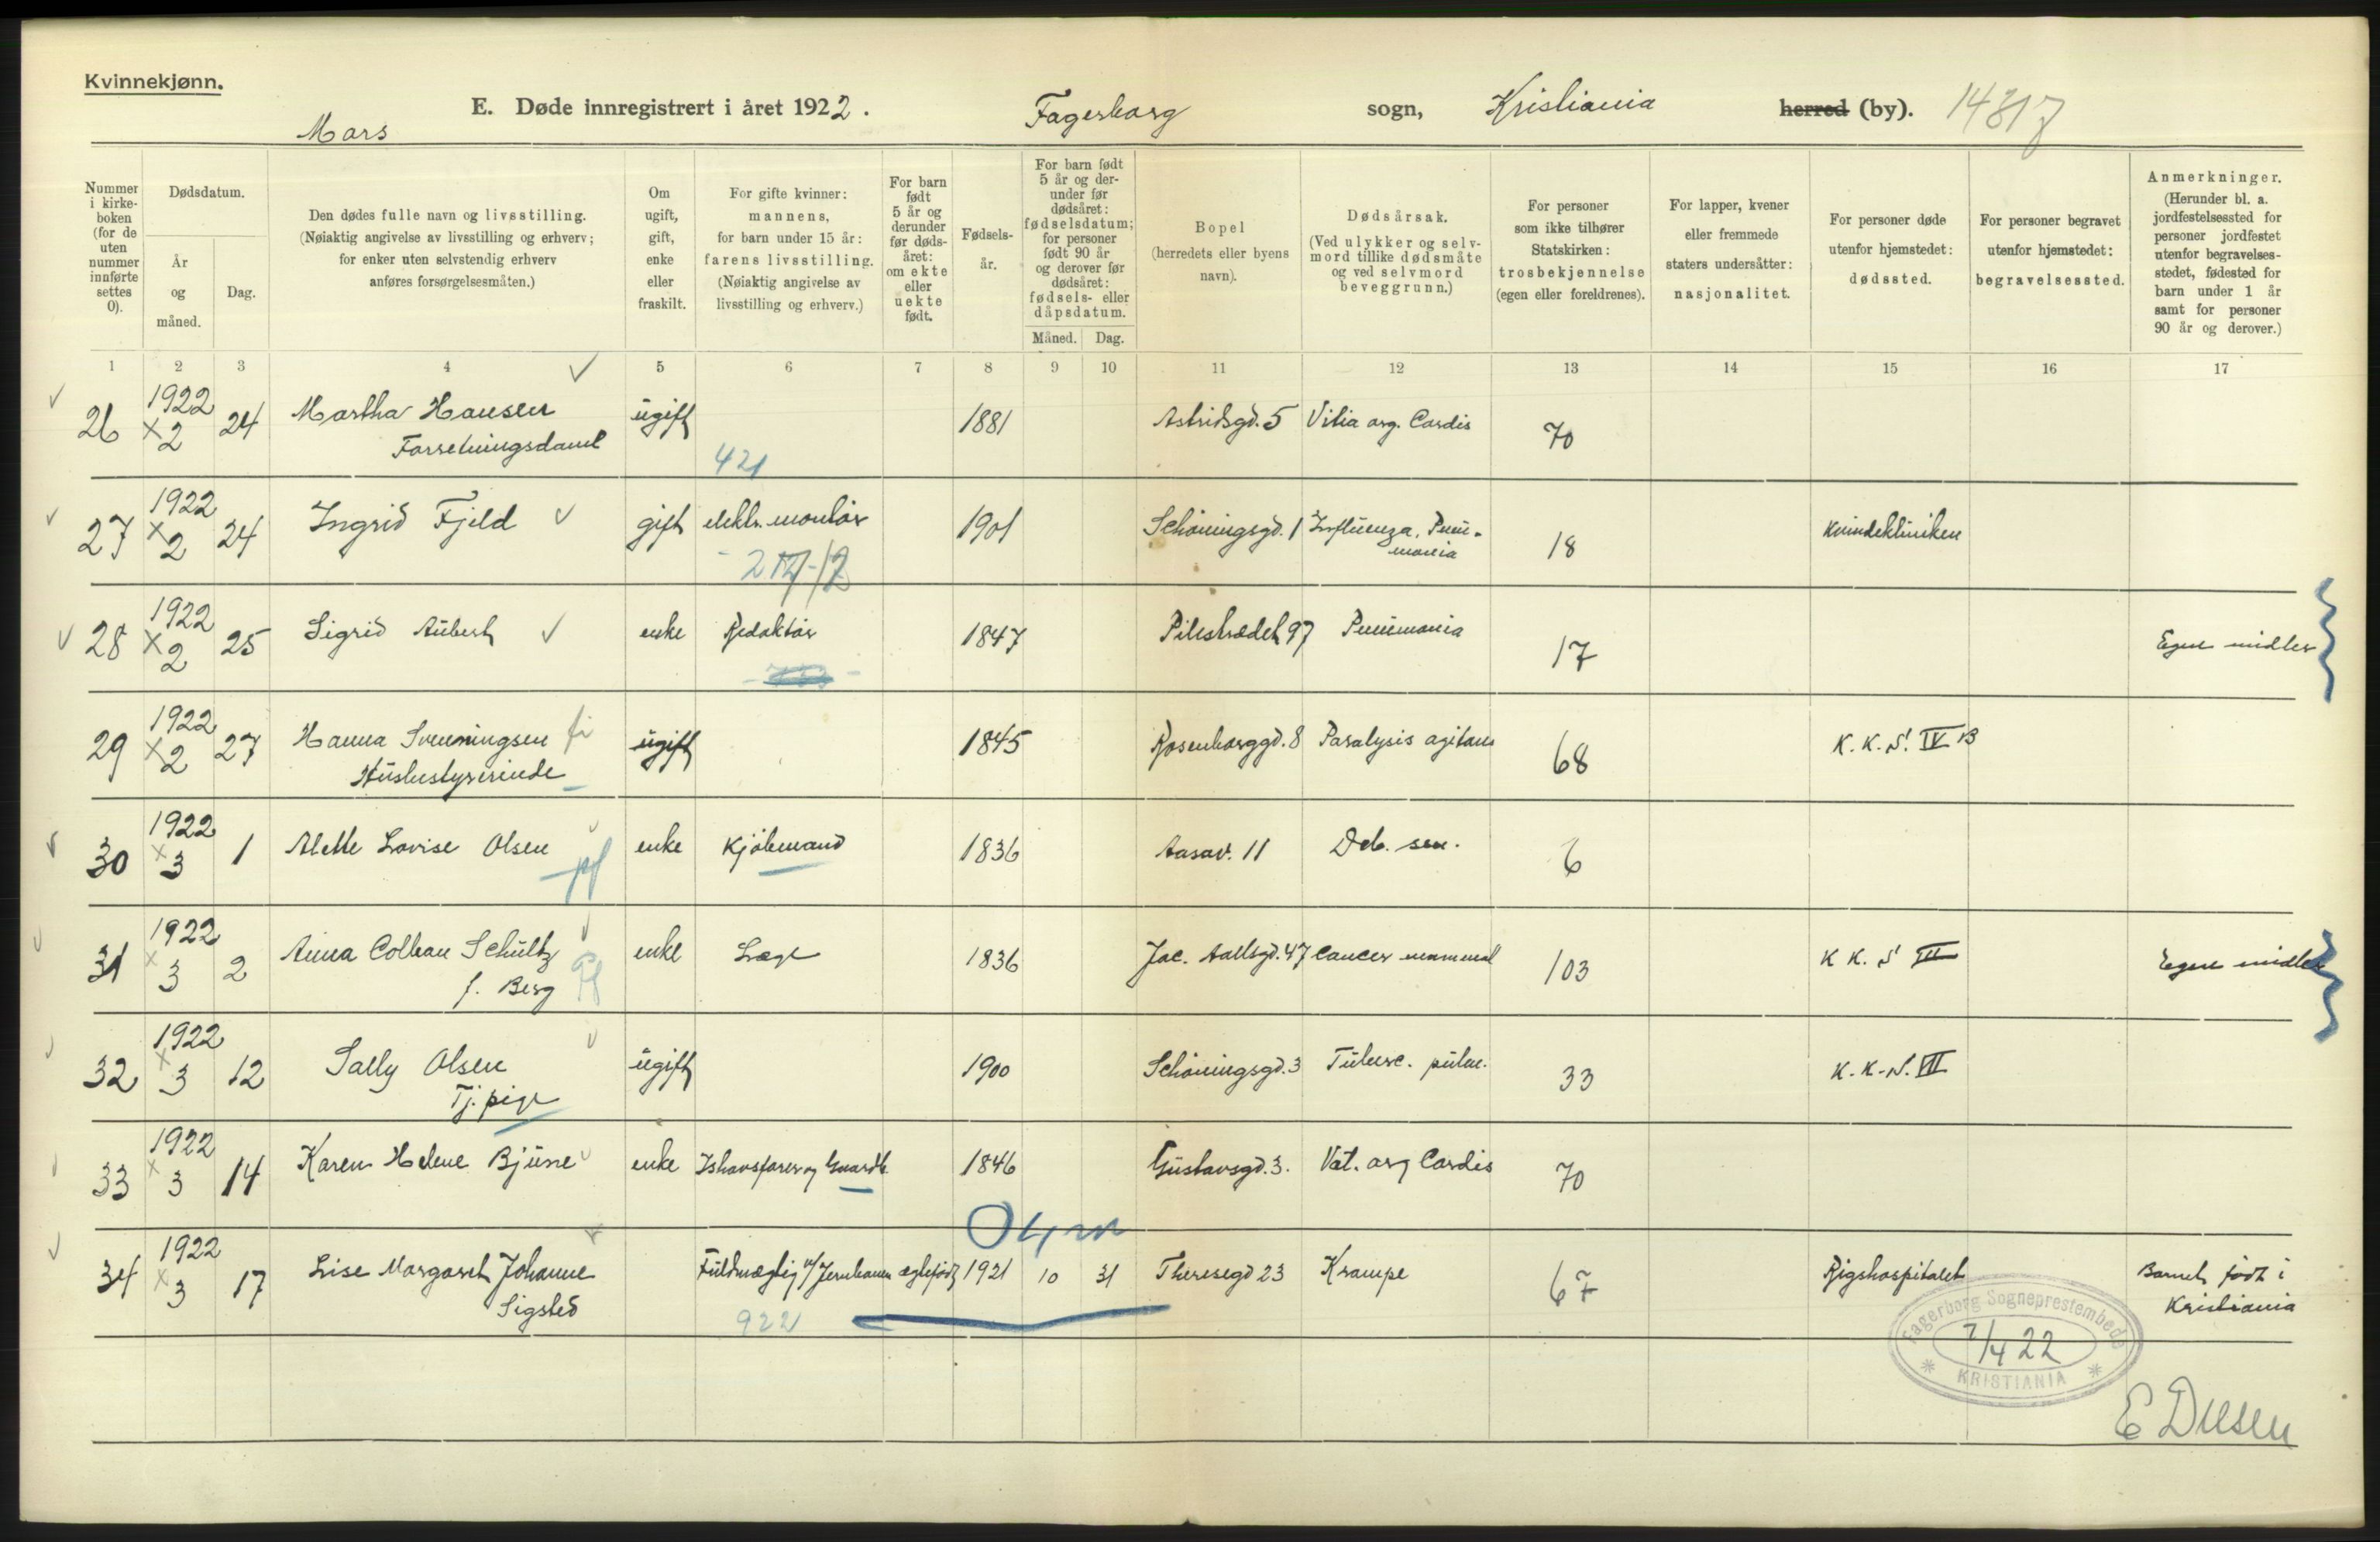 Kvinnekjønn.
E. Døde innregistrert i året 1922. Fagerborg sogn, Kristiania herred (by). 14817
Mars
Nummer i kirkeboken (for de uten nummer innførte settes 0).
Dødsdatum.
År og måned.
Dag.
Den dødes fulle navn og livsstilling.
(Nøiaktig angivelse av livsstilling og erhverv;
for enker uten selvstendig erhverv
anføres forsørgelsesmåten.)
Om
ugift,
gift,
enke
eller
fraskilt.
For gifte kvinner:
mannens,
for barn under 15 år:
farens livsstilling.
(Nøiaktig angivelse av
livsstilling og erhverv.)
For barn
født
5 år og
derunder
før døds-
året:
om ekte
eller
uekte
født.
Fødsels-
år.
For barn født
5 år og der-
under før
dødsåret:
fødselsdatum;
for personer
født 90 år
og derover før
dødsåret:
fødsels- eller
dåpsdatum.
Måned. Dag.
Bopel
(herredets eller byens
navn).
Dødsårsak.
(Ved ulykker og selv-
mord tillike dødsmåte
og ved selvmord
beveggrunn.)
For personer
som ikke tilhører
Statskirken:
trosbekjennelse
(egen eller foreldrenes).
For lapper, kvener
eller fremmede
staters undersåtter:
nasjonalitet.
For personer døde
utenfor hjemstedet:
dødssted.
For personer begravet
utenfor hjemstedet:
begravelsessted.
Anmerkninger.
(Herunder bl. a.
jordfestelsessted for
personer jordfestet
utenfor begravelses-
stedet, fødested for
barn under 1 år
samt for personer
90 år og derover.)
1 2 3 4 5 6 7 8 9 10 11 12 13 14 15 16 17
26 1922 2 24 Martha Hansen ugift 1881 Astridsgd. 5 Vitia org. Cordis 70
Forretningsdame 421
27 1922 2 24 Ingrid Fjeld gift elektr. montør 1901 Schöningsgd. 1 Influenza, Pneu-
monia 18 Kvindekliniken
28 1922 2 25 Sigrid Aubert enke Redaktør 1847 Pilestrædet 97 Pneumonia 17 Egne midler
29 1922 2 27 Hanna Svenningsen ugift 1845 Rosenborggd. 8 Paralysis agitans 68 K. K. S. IV B
Husbestyrerinde
30 1922 3 1 Alette Lovise Olsen enke Kjøbmand 1836 Aasav. 11 Deb. sen. 6
31 1922 3 2 Anna Collean Schultz enke Læge 1836 Jac. Aallsgd. 47 Cancer mammae 103 K K. S III Egne midler
f. Berg
32 1922 3 12 Sally Olsen ugift 1900 Schöningsgd. 3 Tuberc. pulm. 33 K. K. S. VII
Tj. pige
33 1922 3 14 Karen Helene Bjune enke Ishavsfarer og Gaardb. 1846 Gustavsgd. 3. Vit. org Cordis 70
04 m
34 1922 3 17 Lise Margaret Johanne Fuldmægtig v/ Jernbanen ægtefødt 1921 10 31 Theresegd 23 Krampe 67 Rigshospitalet Barnet født i
Sigsted 922 Kristiania
Fagerborg Sogneprestembede
7/4 22
KRISTIANIA
E Duesen